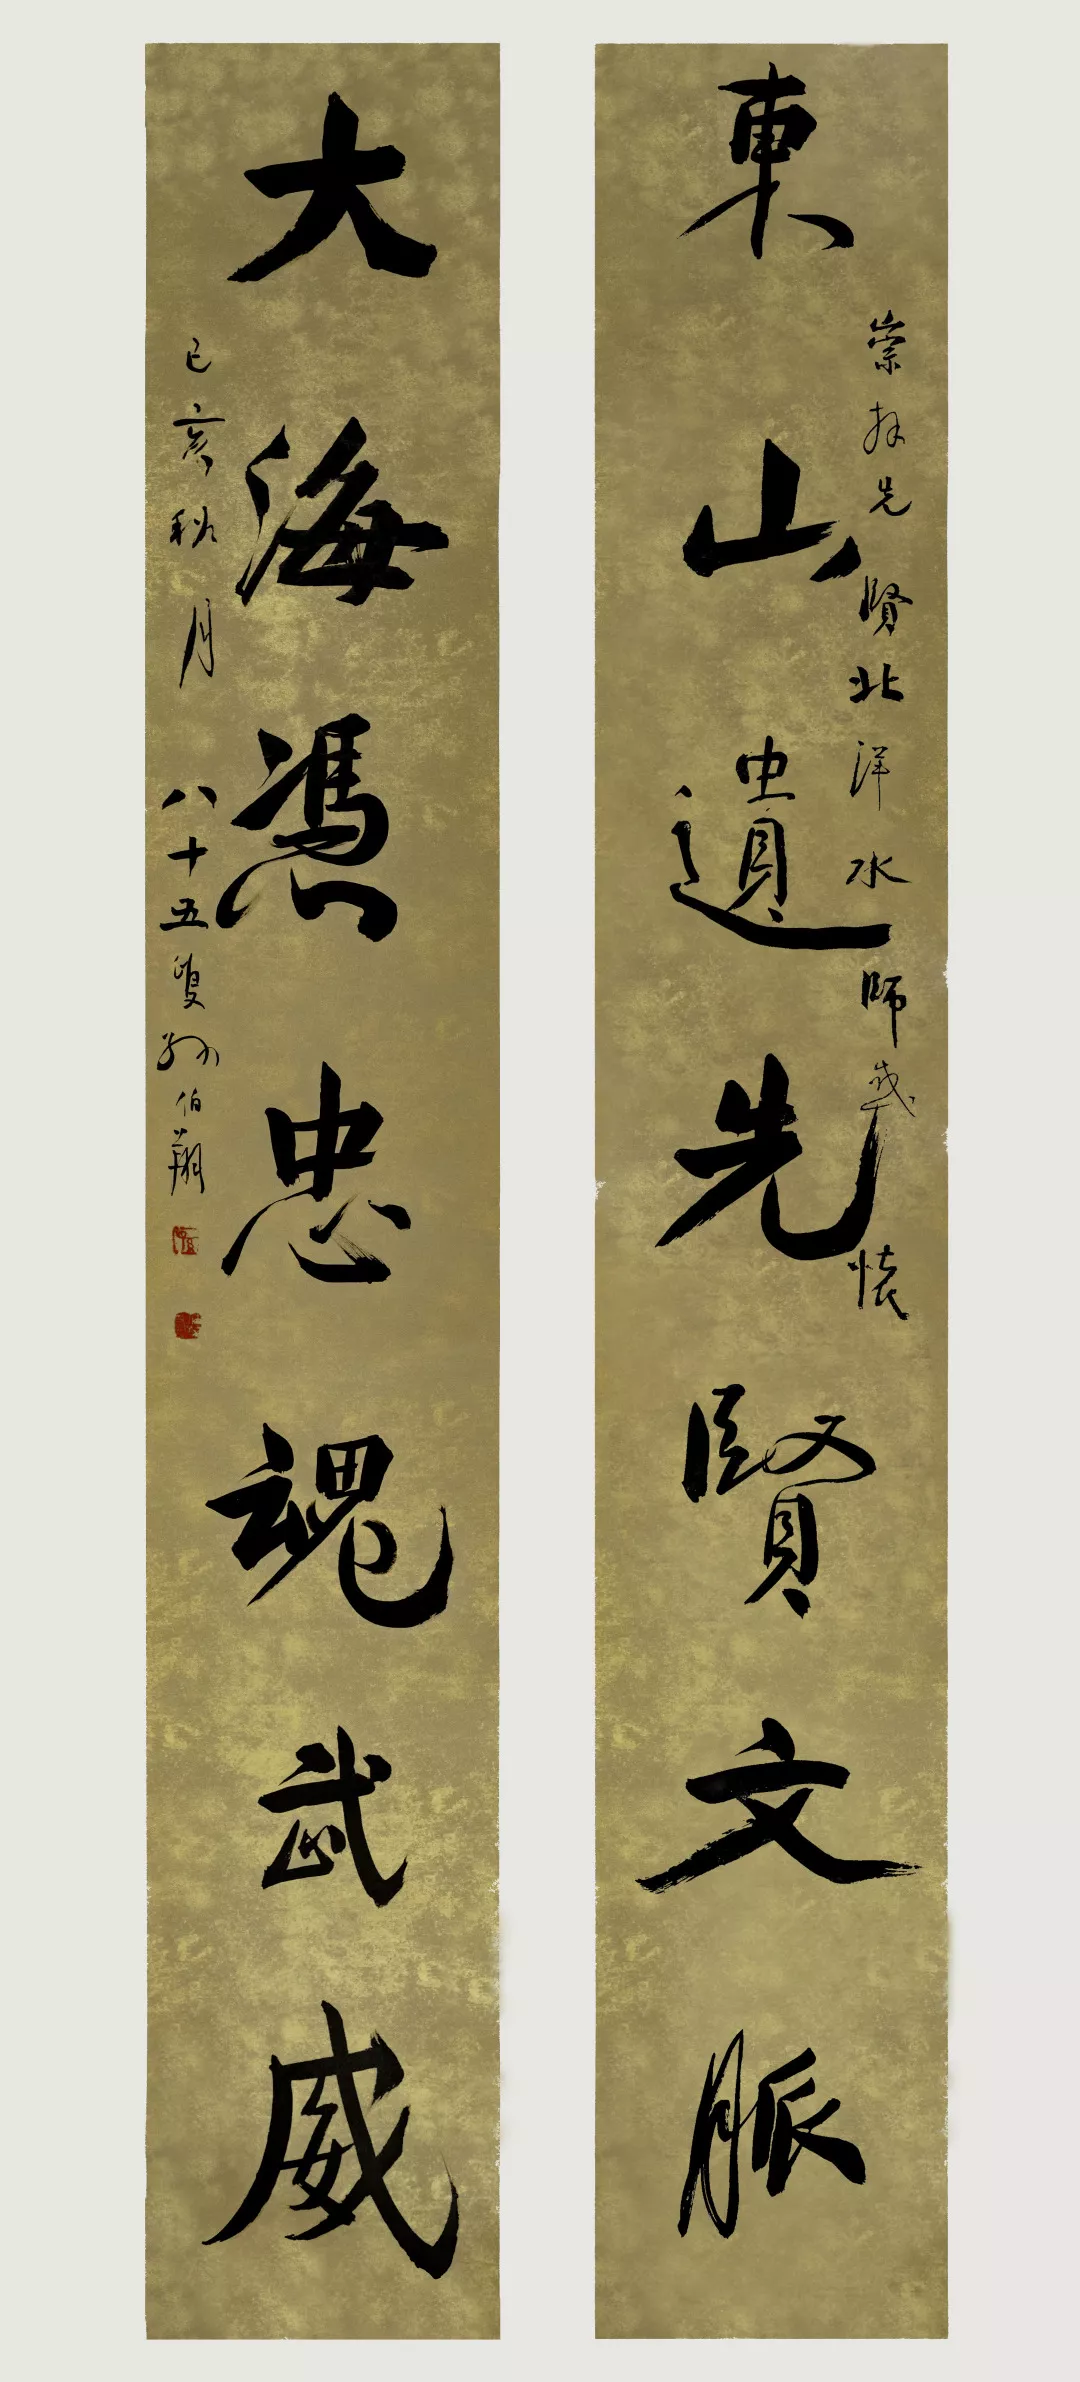 東山遺先賢文脈
崇拜先賢北洋水師感懷
大海憑忠魂武威
己亥秋月
八十五叟孫伯翔